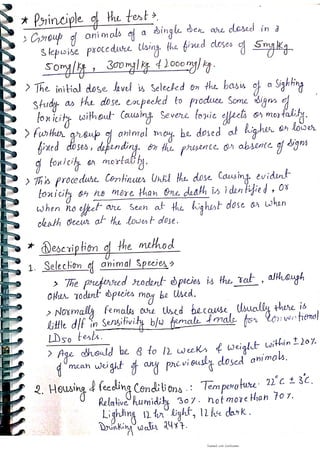 * Principle of the test >.
> Group of animals of a single sex are dosed in a
stepwise procedure using the fixed doses of 5mg/kg.
50mg/kg, 300mg/kg & 2000mg/kg.
> The initial dose level is selected on the basis of a sighting
study as the dose expected to produce some signs of
toxicity without causing severe toxic effects or mortality.
> Further group of animal may be dosed at higher or lower
fixed doses, depending on the presence or absence of signs
of toxicity or mortality.
> This procedure continues until the dose causing evident
toxicity or no more than one death is identified, or
when no effect are seen at the highest dose or when
death occur at the lowest dose.
* Description of the method
1. Selection of animal species >
> The preferred rodent species is the rat, although
other rodent species may be used.
> Normally females are used because usually there is
little d/f in sensitivity b/w female & male for conventional
LD50 tests.
> Age should be 8 to 12 weeks & weight within ± 20%
of mean weight of any previously dosed animals.
2. Housing & feeding conditions : Temperature 22°C ± 3°C.
Relative humidity 30%. not more than 70%.
Lighting 12 hr light, 12 hr dark.
Drinking water 24x7.